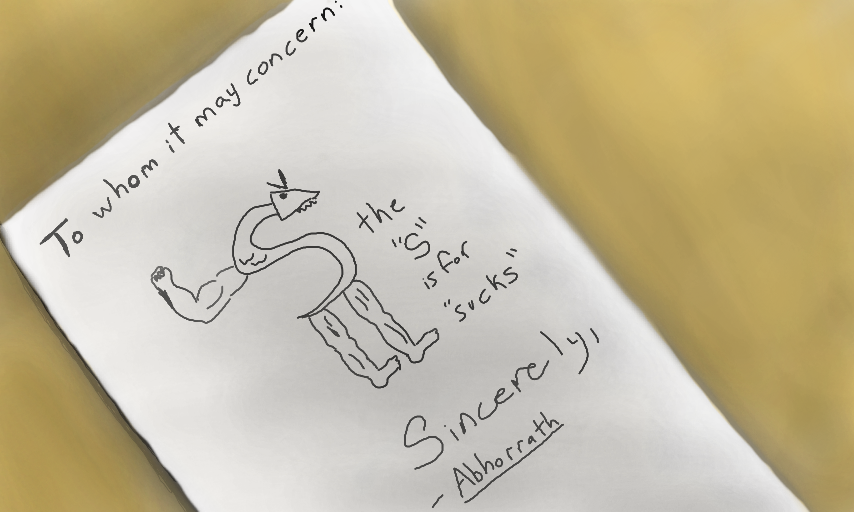 To whom it may concern:
the
"S"
is for
"sucks"
Sincerely,
- Abhorrath